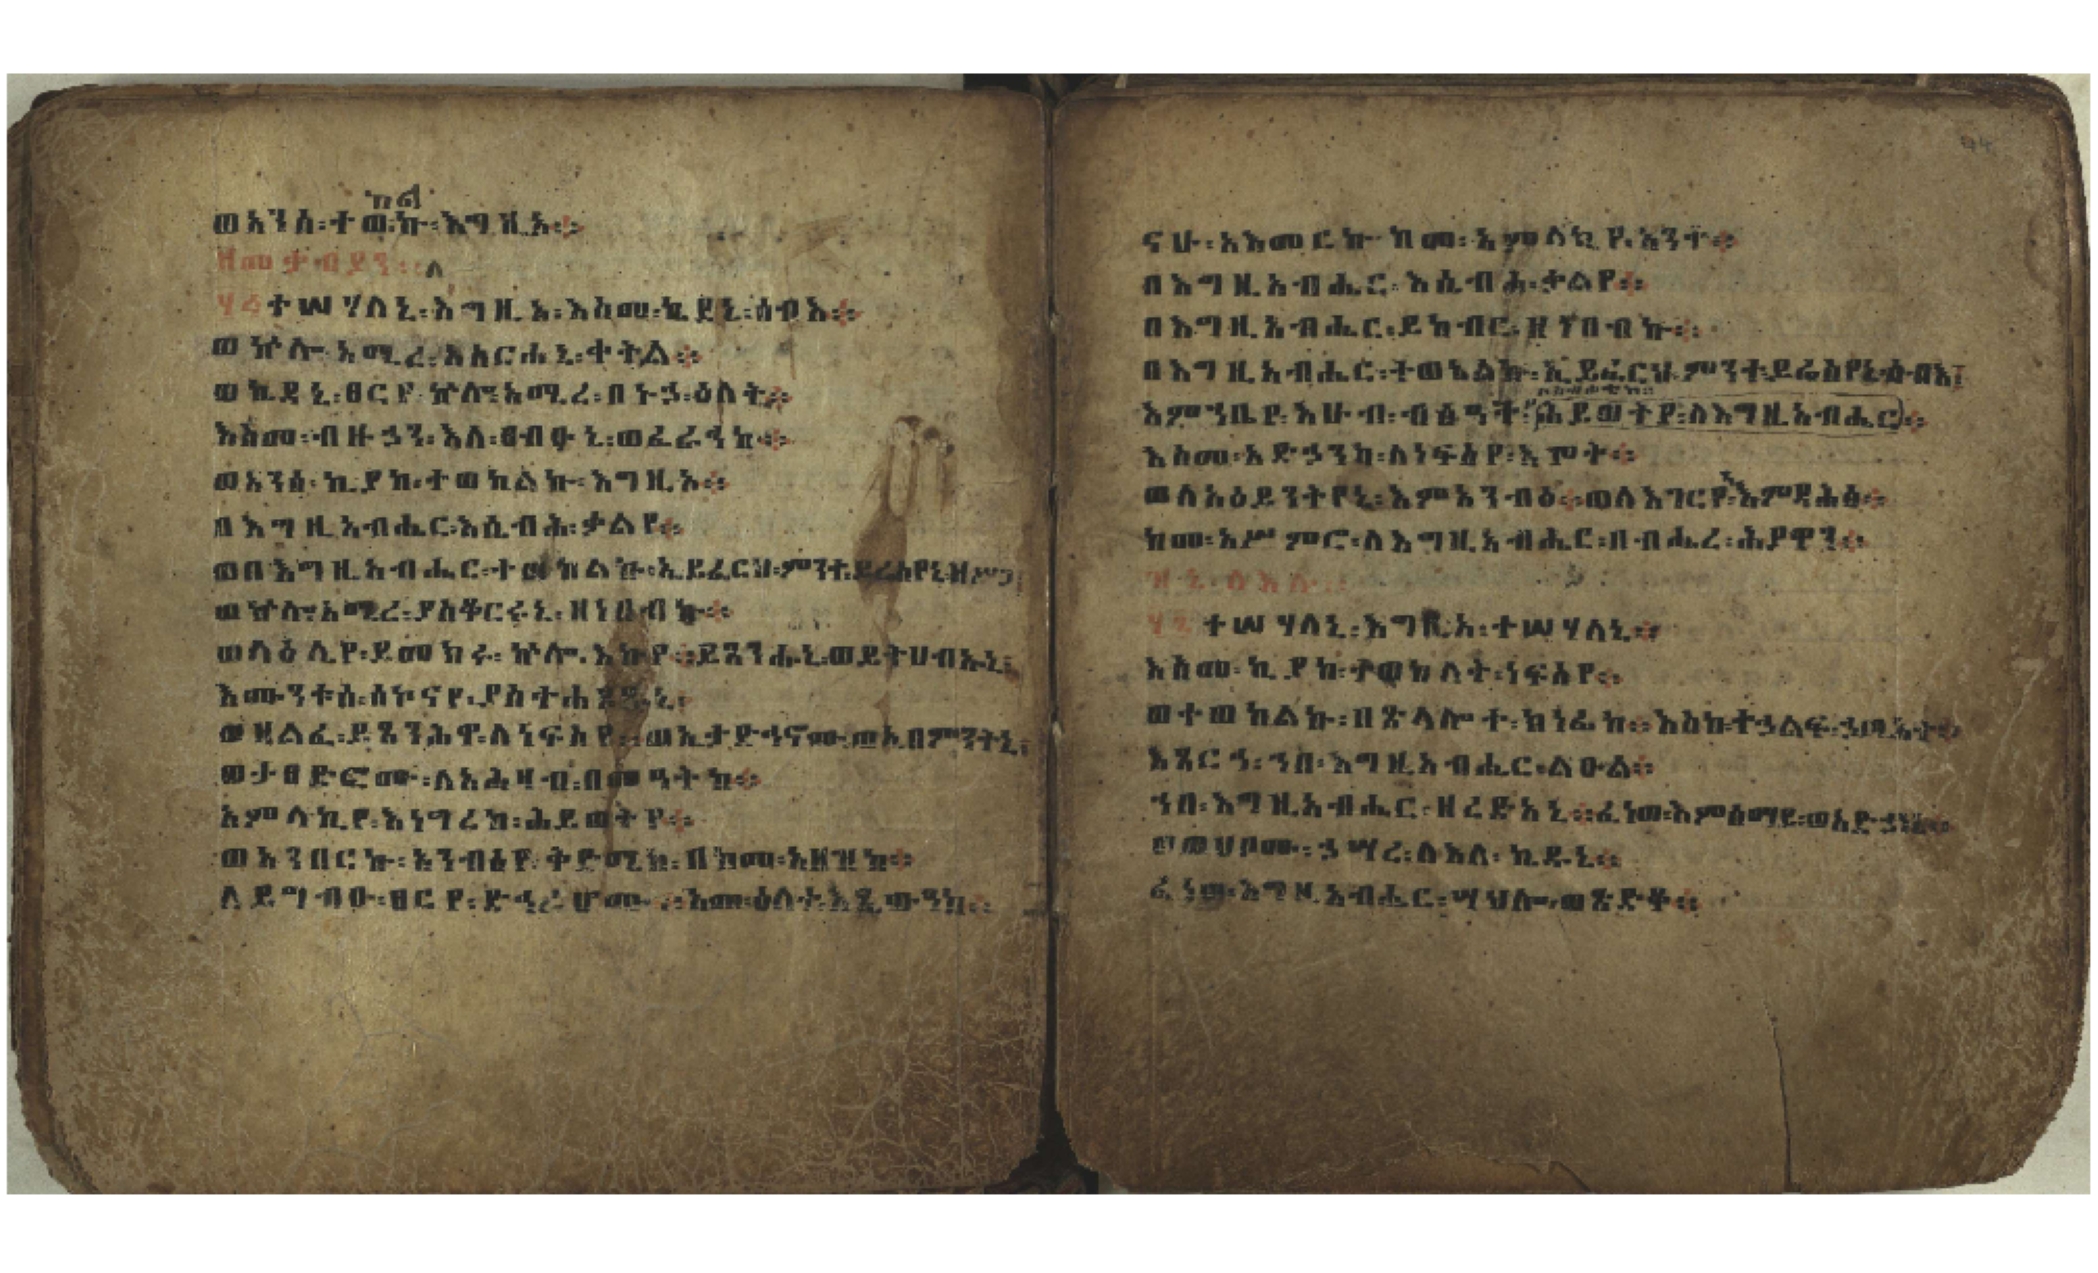 ከል
ወአንሰ፡ተወኩ፡እግዚአ።
ዘመታብያን፡ለ
፶፭ ተሣሃለኒ፡እግዚአ፡እስመ፡ኬደኒ፡ሰብእ።
ወኵሎ፡አሚረ፡አስርሐኒ፡ቀትል።
ወኬዱኒ፡ፀርየ፡ኵሎ፡አሚረ፡በኑኃ፡ዕለት።
እስመ፡ብዙኃን፡እለ፡ፀብዑኒ፡ወፈራኅኩ።
ወአንሰ፡ኪያከ፡ተወከልኩ፡እግዚኦ።
በእግዚአብሔር፡እሴብሕ፡ቃልየ።
ወበእግዚአብሔር፡ተወከልኩ፡ኢይፈርህ፡ምንተ፡ይሬስየኒ፡ዘሥጋ፤
ወኵሎ፡አሚረ፡ያስቆርሩኒ፡ዘነበብኩ።
ወላዕሌየ፡ይመክሩ፡ኵሎ፡እኩየ።ይጼንሑኒ፡ወይትሀብኡኒ፤
እሙንቱሰ፡ሰኮናየ፡ያስተሐይጹኒ፡
ወዘልፈ፡ይጼንሕዋ፡ለነፍስየ።ወኢታድኅኖሙ፡ወኢበምንትኒ፤
ወታፀድፎሙ፡ለአሕዛብ፡በመዓትከ።
አምላኪየ፡እነግረከ፡ሕይወትየ።
ወአንበርኩ፡አንብዕየ፡ቅድሜከ፡በከመ፡አዘዝከ።
ለይግብዑ፡ፀርየ፡ድኅሬሆሙ።እመ፡ዕለተ፡እጼውዓከ።
ናሁ፡አእመርኩ፡ከመ፡አምላኪየ፡አንተ።
በእግዚአብሔር፡እሴብሕ፡ቃልየ።
በእግዚአብሔር፡ይከብር፡ዘነበብኩ።
በእግዚአብሔር፡ተወከልኩ፡ኢይፈርህ፡ምንተ፡ይሬስየኒ፡ሰብእ፤
እምኀቤየ፡እሁብ፡ብፅዓተ፡ሕይወትየ፡ለእግዚአብሔር።
እስመ፡አድኃንከ፡ለነፍስየ፡እሞት።
ወለአዕይንትየኒ፡እምአንብዕ።ወለእገርየ፡እምዳሕፅ።
ከመ፡አሥምሮ፡ለእግዚአብሔር፡በብሔረ፡ሕያዋን።
፶፮ ተሣሃለኒ፡እግዚኦ፡ተሣሃለኒ።
እስመ፡ኪያከ፡ተወከለት፡ነፍስየ።
ወተወከልኩ፡በጽላሎተ፡ክነፊከ።እስከ፡ተኃልፍ፡ኃጢአት።
እጸርኅ፡ኀበ፡እግዚአብሔር፡ልዑል።
ኀበ፡እግዚአብሔር፡ዘረድአኒ።ፈነወ፡እምሰማይ፡ወአድኃነኒ።
ወወሀቦሙ፡ኃሣረ፡ለእለ፡ኬዱኒ።
ፈነወ፡እግዚአብሔር፡ሣህሎ፡ወጽድቆ።